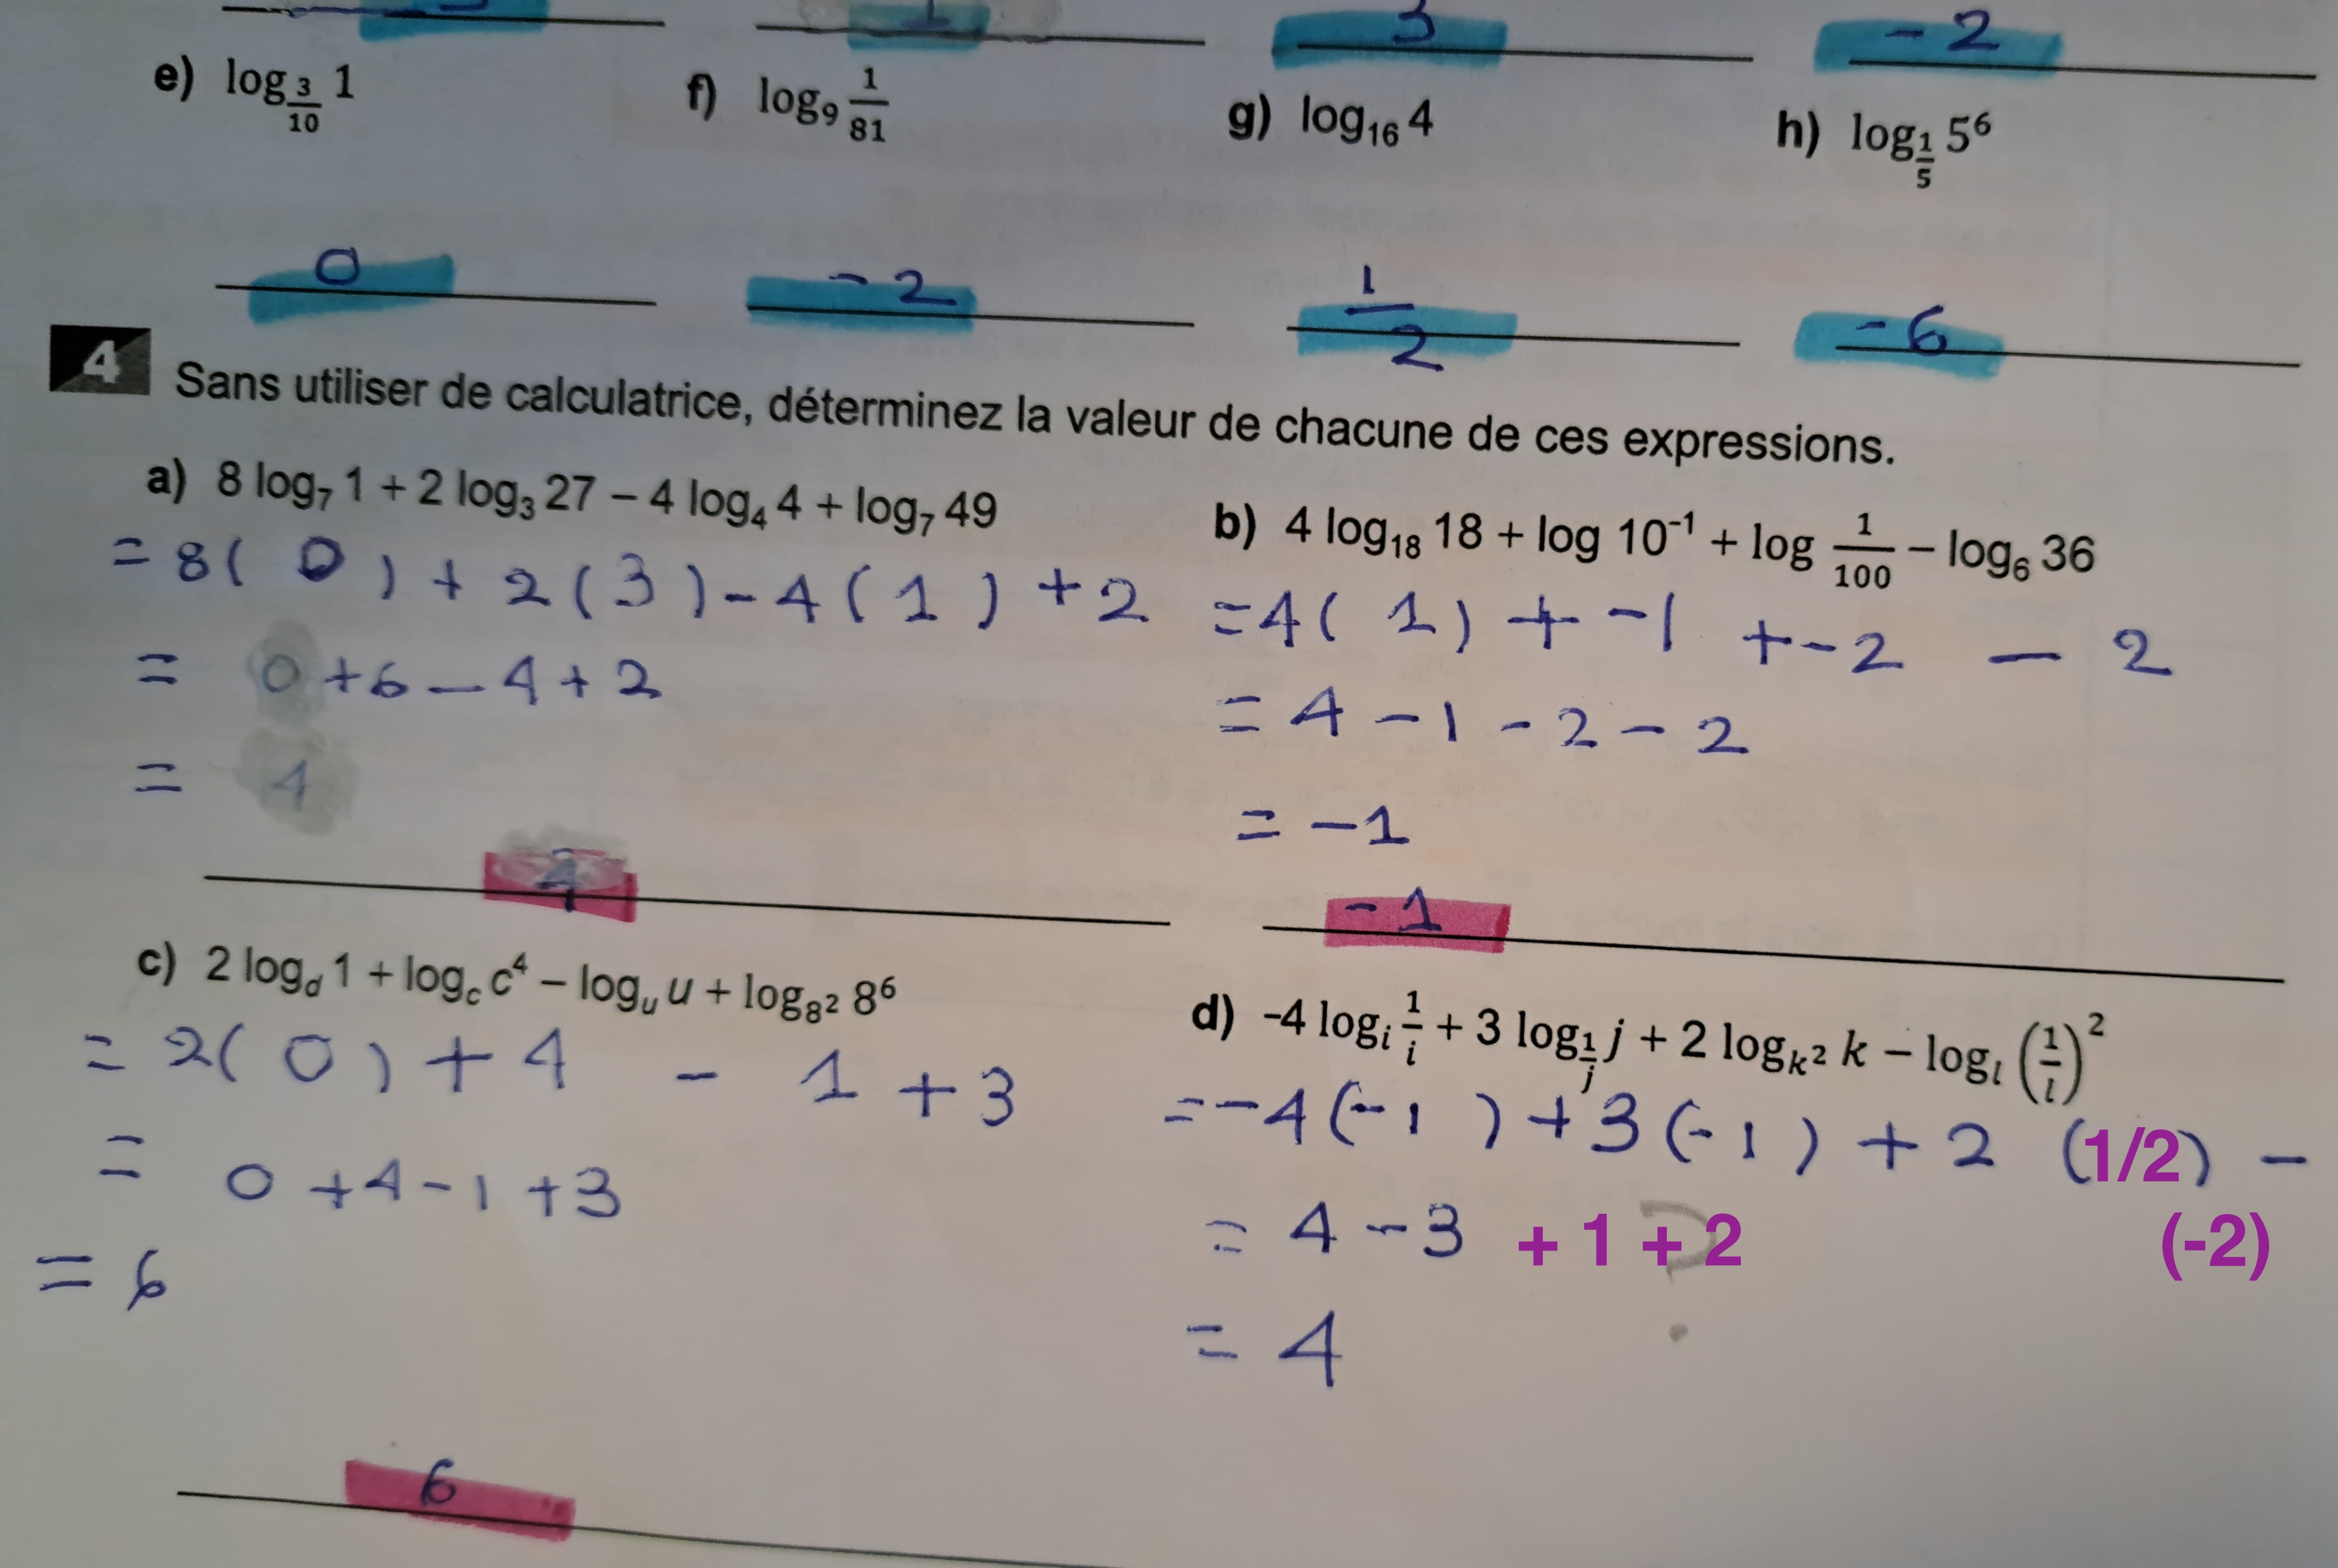 1 3 -2
e) log_{3/10} 1 f) log₉ 1/81 g) log₁₆ 4 h) log_{1/5} 5⁶
0 -2 1/2 -6
4 Sans utiliser de calculatrice, déterminez la valeur de chacune de ces expressions.
a) 8 log₇ 1 + 2 log₃ 27 – 4 log₄ 4 + log₇ 49
= 8( 0 ) + 2(3) - 4(1) + 2
= 0 + 6 - 4 + 2
= 4
4
b) 4 log₁₈ 18 + log 10⁻¹ + log 1/100 – log₆ 36
= 4( 1) + -1 + -2 - 2
= 4 - 1 - 2 - 2
= -1
-1
c) 2 log_d 1 + log_c c⁴ – log_u u + log_{8²} 8⁶
= 2( 0 ) + 4 - 1 + 3
= 0 + 4 - 1 + 3
= 6
6
d) -4 log_i 1/i + 3 log_{1/j} j + 2 log_{k²} k – log_l (1/l)²
= -4(-1 ) + 3(-1) + 2 (1/2) -
(-2)
= 4 - 3 + 1 + 2 ?
= 4